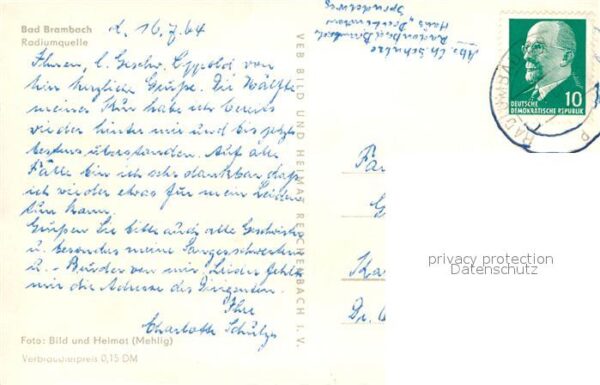 Bad Brambach
Radiumquelle
d. 16.7.64
Ihnen, l. Geschw. Eppold von
hier herzliche Grüße. Die Hälfte
meiner Kur habe ich bereits
wieder hinter mir und bis jetzt
bestens überstanden. Auf alle
Fälle bin ich sehr dankbar daß
ich wieder etwas für mein Leiden
tun kann.
Grüßen Sie bitte auch alle Geschwister
u. besonders meine Sangesschwestern
u. - Brüder von mir. Leider fehlt
mir die Adresse des Dirigenten.
Ihre
Charlotte Schulze
Foto: Bild und Heimat (Mehlig)
Verbraucherpreis 0,15 DM
VEB BILD UND HEIMAT REICHENBACH I. V.
Abs. Ch. Schulze
Radiumbad Brambach
Haus
DEUTSCHE
DEMOKRATISCHE REPUBLIK
10
privacy protection
Datenschutz